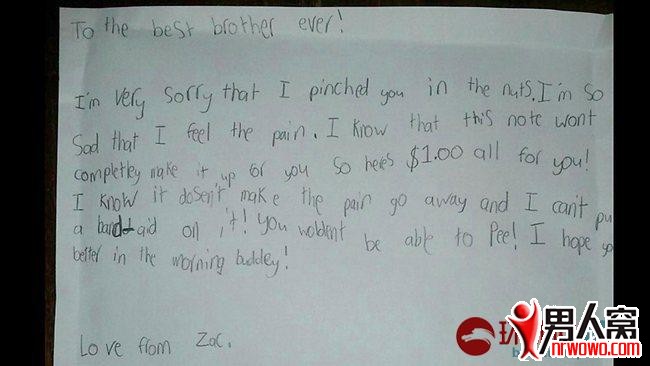 To the best brother ever!
I'm very sorry that I pinched you in the nuts. I'm so
sad that I feel the pain. I know that this note wont
completley make it up for you so heres $1.00 all for you!
I know it dosen't make the pain go away and I can't pu
a band-aid on it! You woldent be able to pee! I hope yo
better in the morning buddey!
Love from Zac.
环
男人窝
nrwowo.com